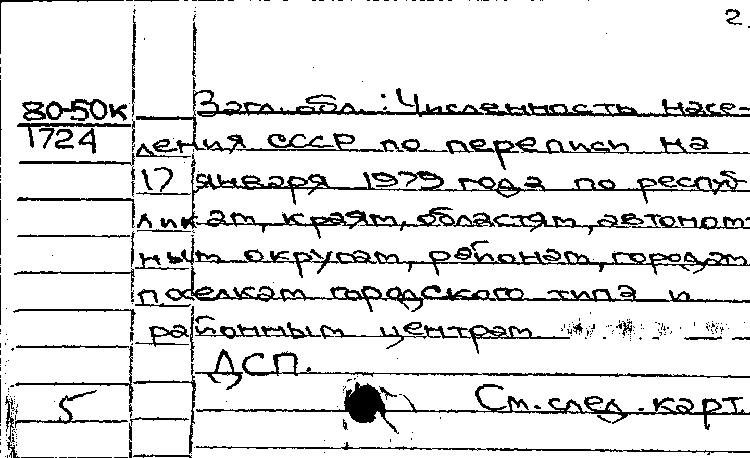 2.
80-50к
1724
Загл. обл.: Численность насе-
ления СССР по переписи на
17 января 1979 года по респуб-
ликам, краям, областям, автоном-
ным округам, районам, городам
поселкам городского типа и
районным центрам
ДСП.
5
См. след. карт.